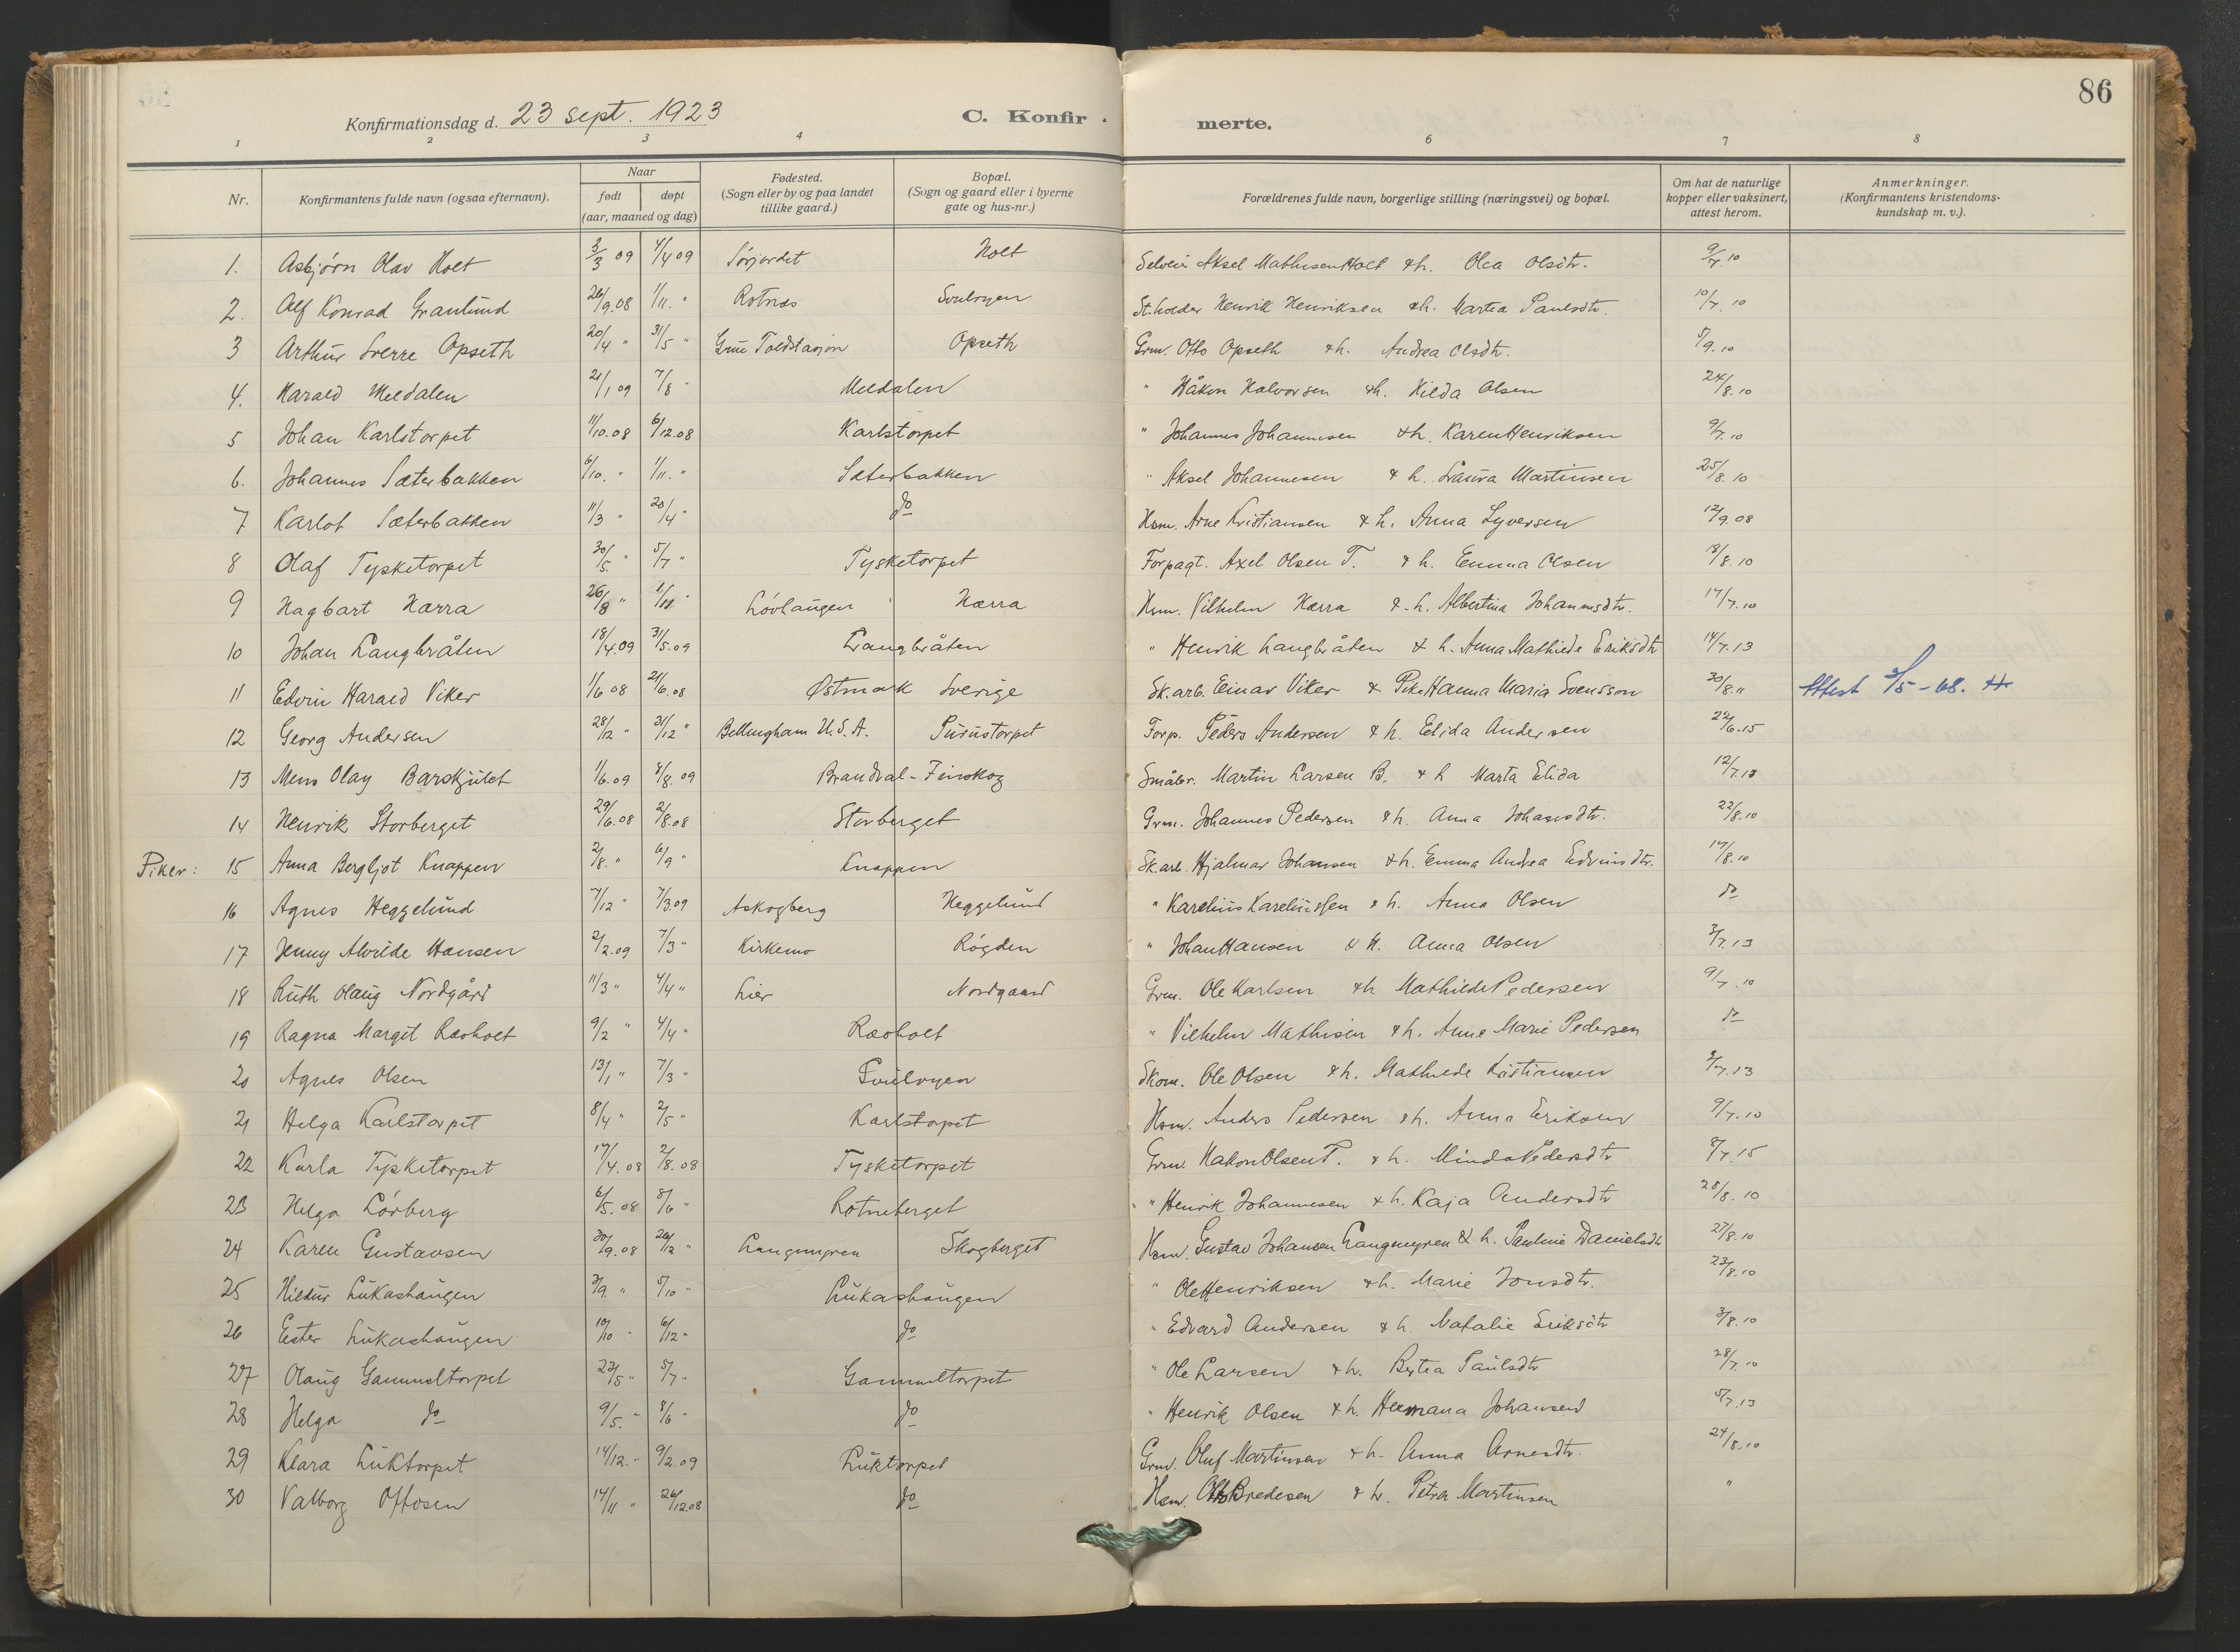 86
Konfirmationsdag d. 23 sept. 1923 C. Konfir merte.
1 2 3 4 6 7 8
Nr. Konfirmantens fulde navn (ogsaa efternavn). Naar født døpt (aar, maaned og dag) Fødested. (Sogn eller by og paa landet tillike gaard.) Bopæl. (Sogn og gaard eller i byerne gate og hus-nr.) Forældrenes fulde navn, borgerlige stilling (næringsvei) og bopæl. Om hat de naturlige kopper eller vaksinert, attest herom. Anmerkninger. (Konfirmantens kristendoms-kundskap m. v.).
1. Asbjørn Olav Holt 3/3 09 4/4 09 Sørjordet Holt Selveier Aksel Mathisen Holt & h. Olea Olsdtr. 9/7.10
2. Alf Konrad Granlund 26/9.08 1/11. " Rotnes Svulryen St.holder Henrik Henriksen & h. Martea Paulsdtr. 10/7.10
3 Arthur Sverre Opseth 20/4 " 31/5 " Grue Toldstasjon Opseth Grm. Otto Opseth & h. Andrea Olsdtr. 5/9.10
4. Harald Meldalen 21/1 09 7/8 " Meldalen " Håkon Halvorsen & h. Hilda Olsen 24/8.10
5 Johan Karlstorpet 11/10.08 6/12.08 Karlstorpet " Johannes Johannesen & h. Karen Henriksen 9/7.10
6. Johannes Sæterbakken 6/10. " 1/11. " Sæterbakken " Aksel Johannesen & h. Laura Martinsen 25/8.10
7 Karlot Sæterbakken 11/3 " 20/4 " do Hsm. Arne Kristiansen & h. Anna Syversen 12/9.08
8 Olaf Tysketorpet 30/5. " 5/7 " Tysketorpet Forpagt. Axel Olsen T. & h. Emma Olsen 18/8.10
9 Hagbart Harra 26/8 " 1/11 " Løvhaugen Harra Hsm. Vilhelm Harra & h. Albertina Johannsdtr. 17/7.10
10 Johan Langbråten 18/4.09 31/5.09 Langbråten " Henrik Langbråten & h. Anna Mathilde Eriksdtr 14/7.13
11 Edvin Harald Viker 1/6 08 21/6.08 Østmark Sverige Sk.arb. Einar Viker & Pike Hanna Maria Svensson 30/8." Attest 2/5-68. H
12 Georg Andersen 28/12 " 31/12 " Bellingham U.S.A. Purustorpet Forp. Peders Andersen & h. Elida Andersen 22/6.15
13 Mens Olav Barskjulet 1/6.09 8/8.09 Brandval-Finskog Småbr. Martin Larsen B. & h Marta Elida 12/7.13
14 Henrik Storberget 29/6.08 2/8.08 Storberget Grm. Johannes Pedersen & h. Anna Johansdtr. 22/8.10
Piker: 15 Anna Bergljot Knappen 2/8. " 6/9 " Knappen Sk.arb. Hjalmar Johansen & h. Emma Andrea Edvinsdtr. 17/8.10
16 Agnes Heggelund 7/12 " 7/3.09 Askogberg Heggelund " Karelius Kareliussen & h. Anna Olsen do
17 Jenny Alvilde Hansen 2/2.09 7/3 " Kirkemo Røgden " Johan Hansen & h. Anna Olsen 3/7.13
18 Ruth Olaug Nordgård 11/3 " 4/4 " Lier Nordgaard Grm. Ole Karlsen & h Mathilde Pedersen 9/7.10
19 Ragna Margit Raaholt 9/2 " 4/4 " Raaholt " Vilhelm Mathisen & h. Anne Marie Pedersen do
20 Agnes Olsen 13/1 " 7/3 " Svulryen Skom. Ole Olsen & h. Mathilde Kristiansen 3/7.13
21 Helga Karlstorpet 8/4 " 2/5 " Karlstorpet Hsm. Anders Pedersen & h. Anna Eriksen 9/7.10
22 Karla Tysketorpet 17/4.08 2/8.08 Tysketorpet Grm. Hakon Olsen T. & h. Minda Pedersdtr 8/7.15
23 Helga Lörberg 6/5.08 8/6 " Rotneberget " Henrik Johannesen & h. Kaja Andersdtr 28/8.10
24 Karen Gustavsen 30/9.08 26/12 " Langmyren Skogberget Hsm. Gustav Johansen Langmyren & h. Pauline Danielsdtr 27/8.10
25 Hildur Lukashaugen 3/9. " 5/10 " Lukashaugen " Ole Henriksen & h. Marie Jonsdtr. 23/8.10
26 Ester Lukashaugen 10/10 " 6/12 " do " Edvard Andersen & h. Natalie Eriksdtr 3/8.10
27 Olaug Gammeltorpet 23/5 " 5/7 " Gammeltorpet " Ole Larsen & h. Bertea Paulsdtr 28/7.10
28 Helga do 9/5. " 8/6 " do " Henrik Olsen & h. Hermana Johansen 5/7.13
29 Klara Luktorpet 14/12. " 9/2.09 Luktorpet Grm. Oluf Martinsen & h. Anna Arnesdtr. 24/8.10
30 Valborg Ottosen 14/11 " 26/12.08 do Hsm. Otto Bredesen & h. Petra Martinsen "